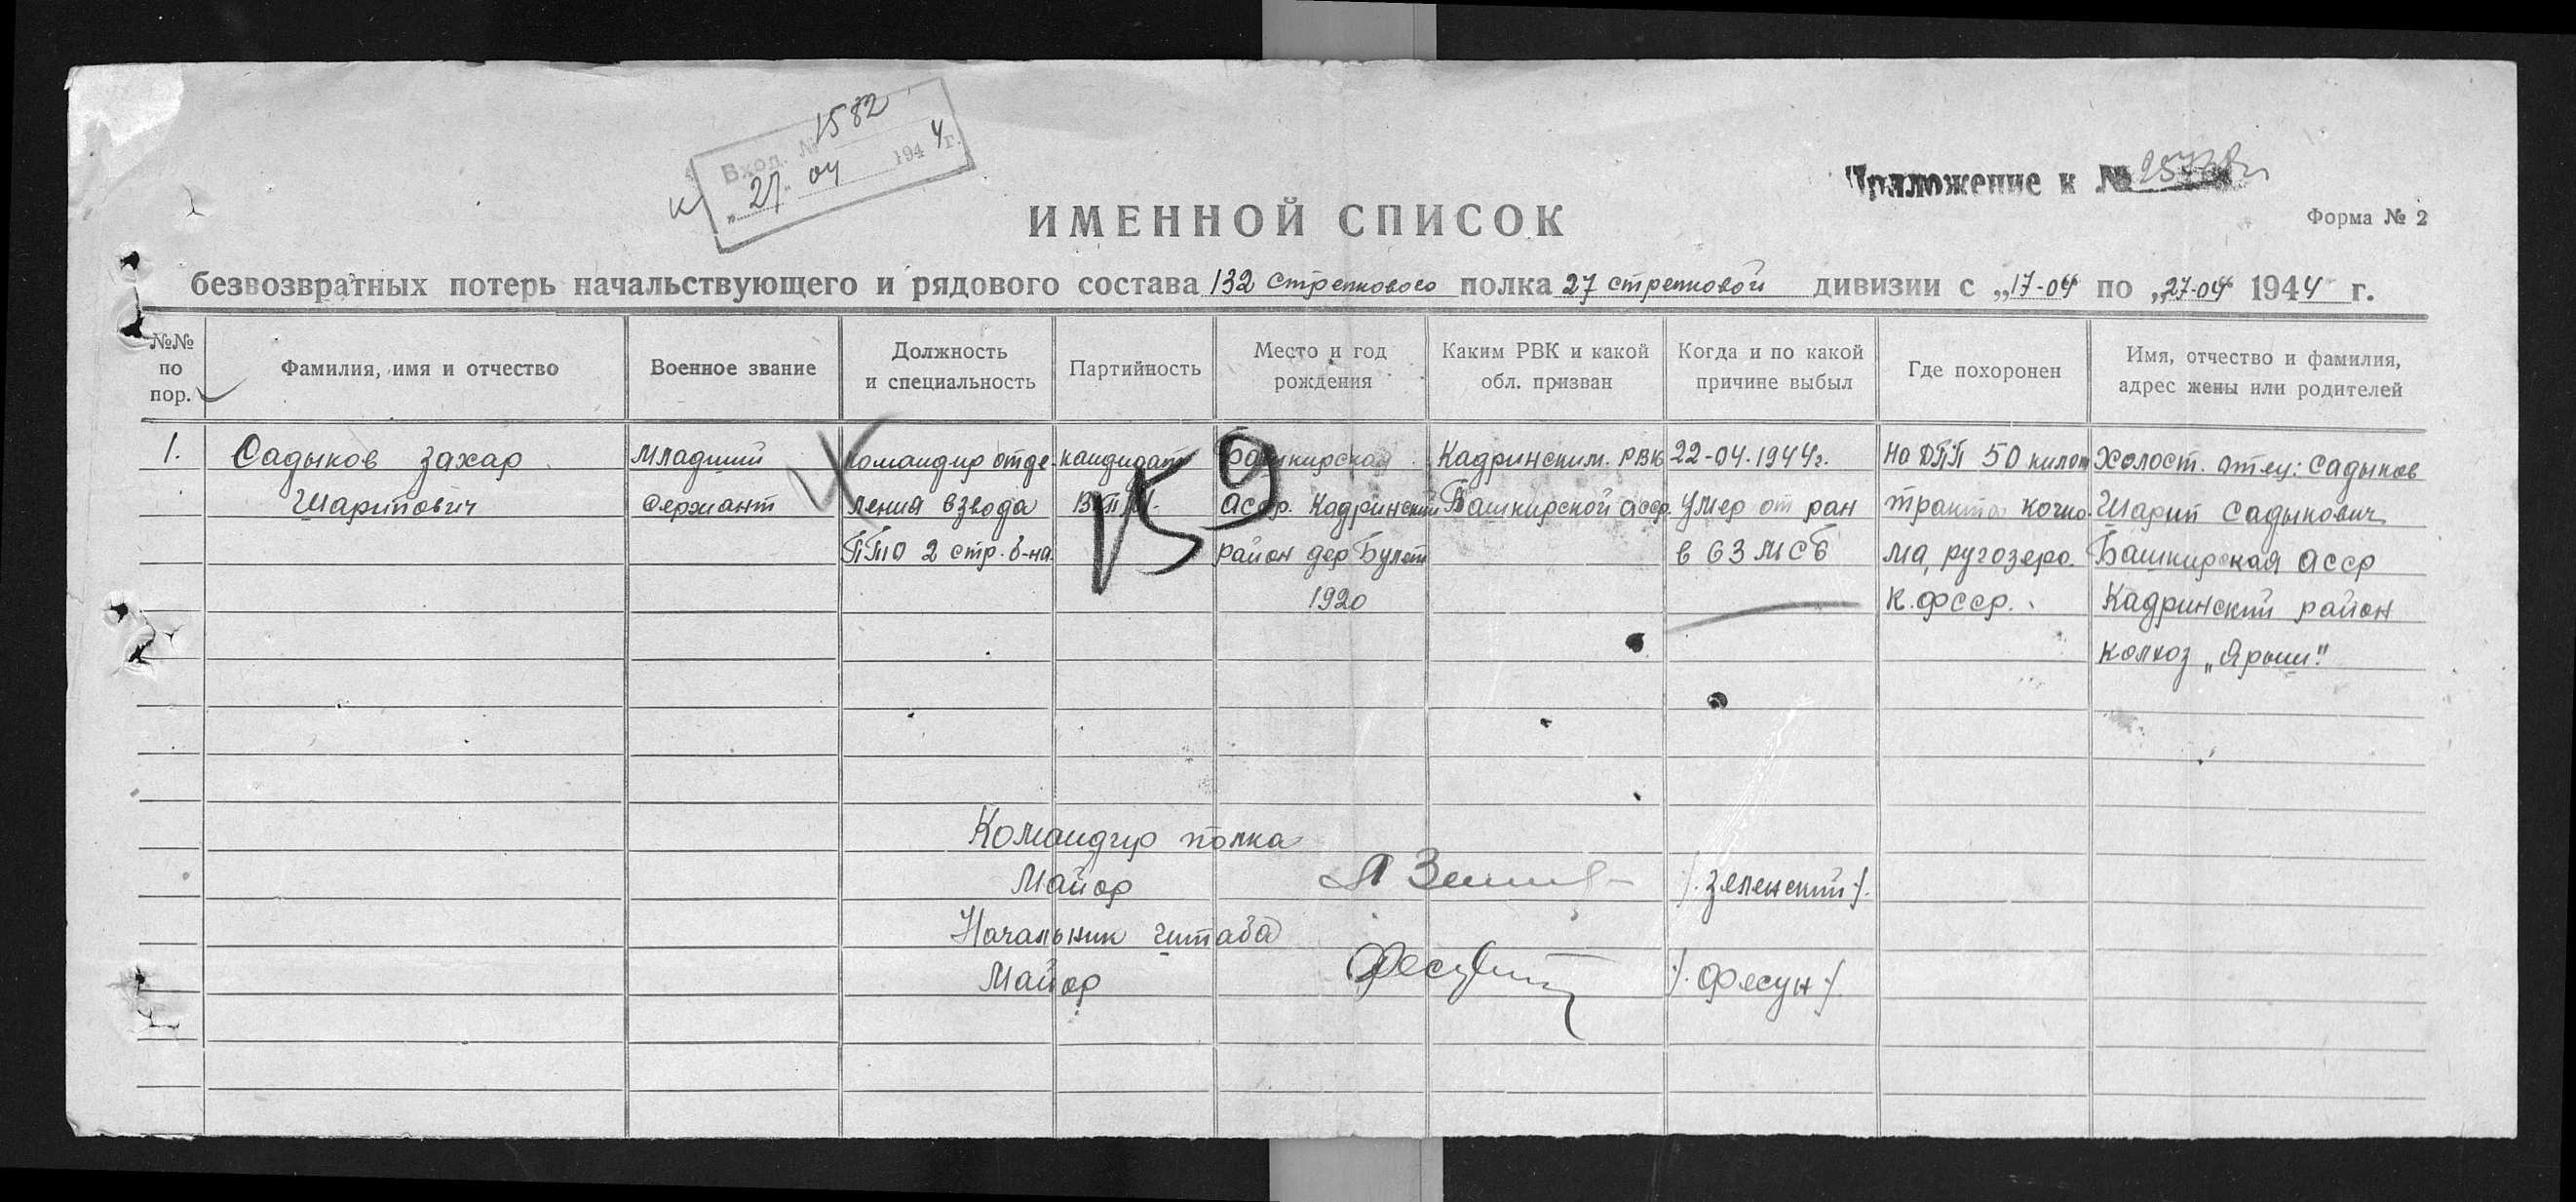 Вход. № 1582
"27" 04 1944 г.
Приложение к №
ИМЕННОЙ СПИСОК
Форма № 2
безвозвратных потерь начальствующего и рядового состава 132 стрелкового полка 27 стрелковой дивизии с "17-04" по "27-04" 1944 г.
№№ по пор. Фамилия, имя и отчество Военное звание Должность и специальность Партийность Место и год рождения Каким РВК и какой обл. призван Когда и по какой причине выбыл Где похоронен Имя, отчество и фамилия, адрес жены или родителей
1. Садыков Захар Младший командир отде- кандидат Башкирская Кадринским. РВК 22-04.1944г. на ДПП 50 килом Холост. отец: Садыков
Шарипович сержант ления взвода ВКП/б/. АССР. Кадринский Башкирской АССР. умер от ран тракта кочко- Шарип Садыкович
ПТО 2 стр. б-на район дер Булат в 63 МСБ ма, ругозеро. Башкирская АССР
1920 К.ФССР. Кадринский район
колхоз „Ярыш"
159
Командир полка
Майор /. Зеленский ./.
Начальник штаба
Майор /. Фесун ./